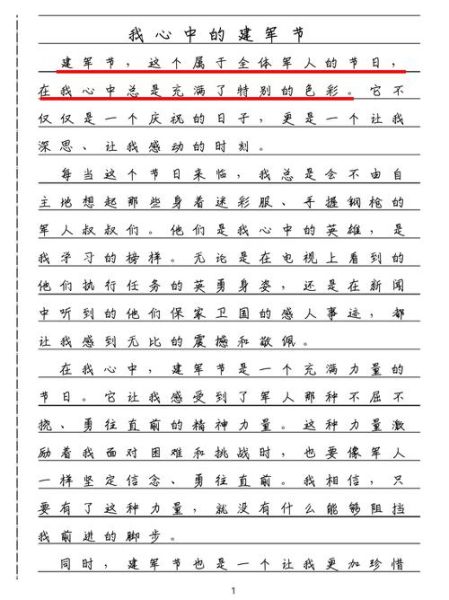 我心中的建军节
建军节，这个属于全体军人的节日，
在我心中总是充满了特别的色彩。它不
仅仅是一个庆祝的日子，更是一个让我
深思、让我感动的时刻。
每当这个节日来临，我总是会不由自
主地想起那些身着迷彩服、手握钢枪的
军人叔叔们。他们是我心中的英雄，是
我学习的榜样。无论是在电视上看到的
他们执行任务的英勇身姿，还是在新闻
中听到的他们保家卫国的感人事迹，都
让我感到无比的震撼和敬佩。
在我心中，建军节是一个充满力量的
节日。它让我感受到了军人那种不屈不
挠、勇往直前的精神力量。这种力量激
励着我面对困难和挑战时，也要像军人
一样坚定信念、勇往直前。我相信，只
要有了这种力量，就没有什么能够阻挡
我前进的脚步。
同时，建军节也是一个让我更加珍惜
1